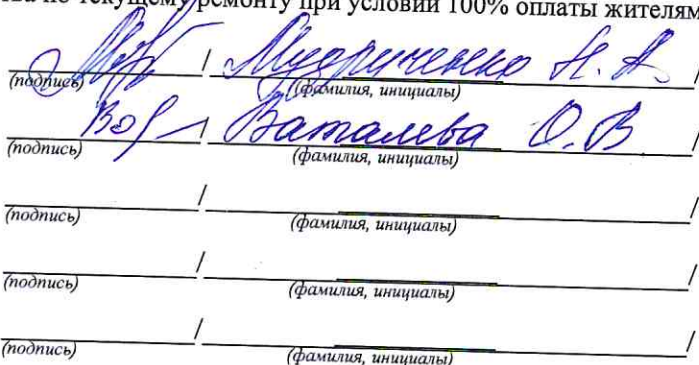 по текущему ремонту при условии 100% оплаты жителям
/ Н. А. /
(подпись) (фамилия, инициалы)
/ Ваталева О. В /
(подпись) (фамилия, инициалы)
/ /
(подпись) (фамилия, инициалы)
/ /
(подпись) (фамилия, инициалы)
/ /
(подпись) (фамилия, инициалы)